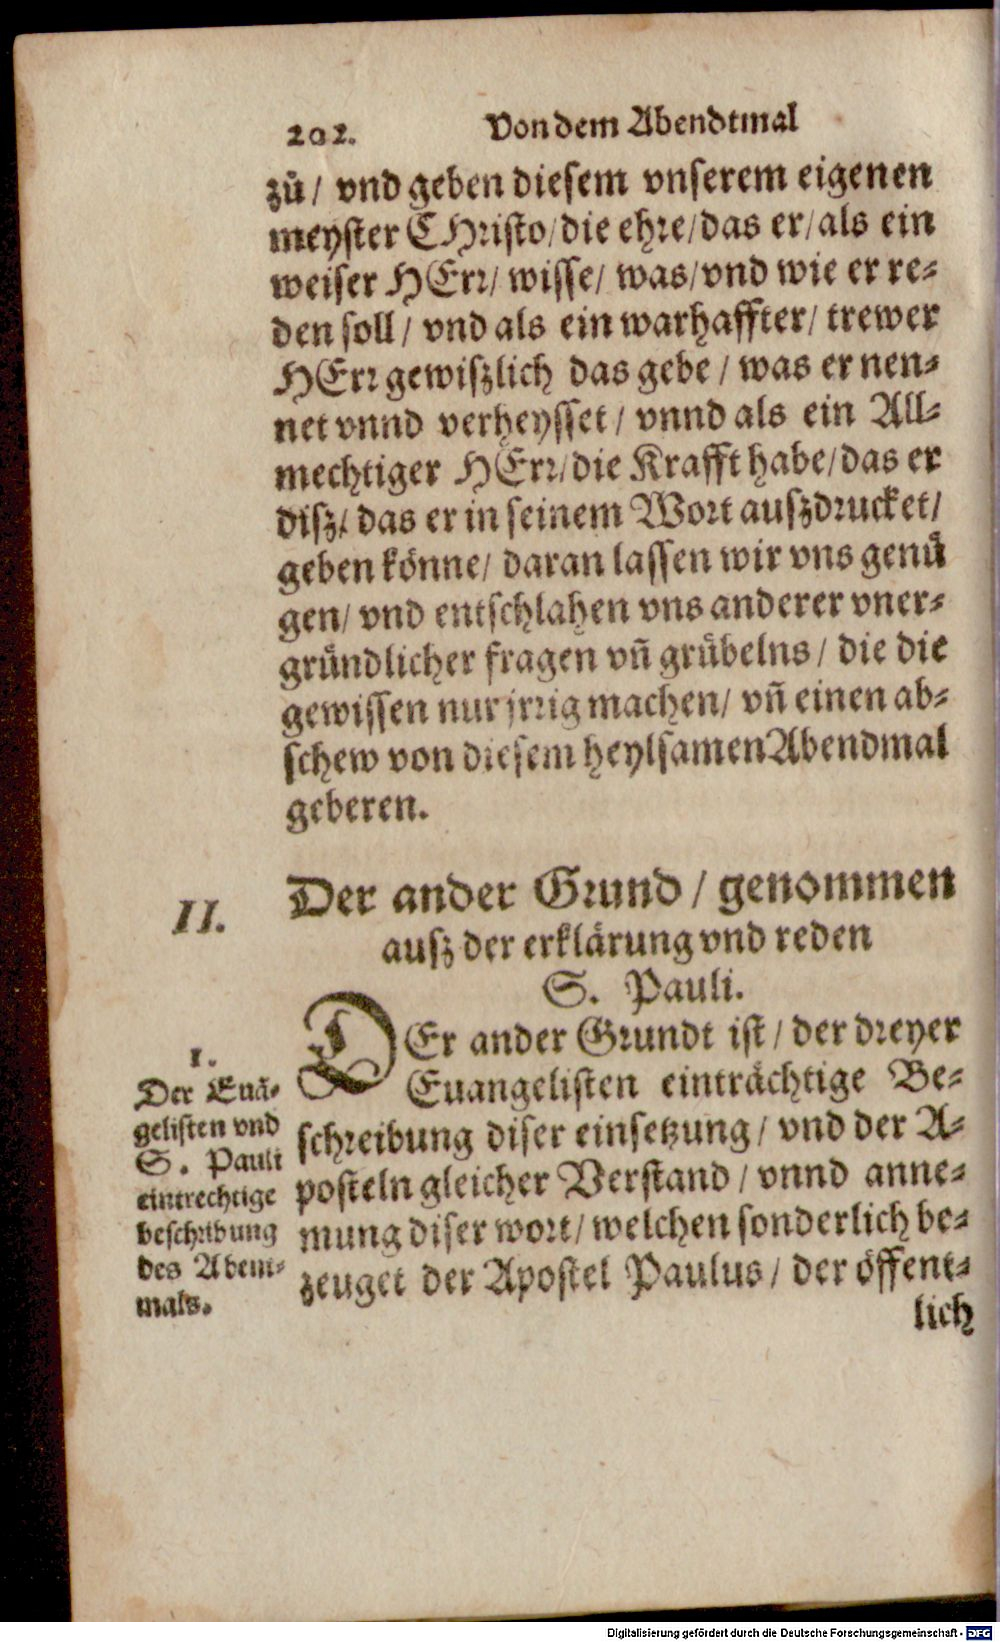 202. Von dem Abendtmal
zů / vnd geben diesem vnserem eigenen
meyster CHristo/die ehre/das er/als ein
weiser HErr/ wisse/ was/vnd wie er re-
den soll / vnd als ein warhaffter/ trewer
HErr gewißlich das gebe / was er nen-
net vnnd verheysset / vnnd als ein All-
mechtiger HErr/die Krafft habe/das er
diß/ das er in seinem Wort außdrucket/
geben könne/ daran lassen wir vns genů
gen/ vnd entschlahen vns anderer vner-
gründlicher fragen vñ grübelns / die die
gewissen nur jrrig machen/ vñ einen ab-
schew von diesem heylsamen Abendmal
geberen.
II.
Der ander Grund / genommen
auß der erklärung vnd reden
S. Pauli.
DEr ander Grundt ist / der dreyer
Euangelisten einträchtige Be-
schreibung diser einsetzung / vnd der A-
posteln gleicher Verstand / vnnd anne-
mung diser wort/ welchen sonderlich be-
zeuget der Apostel Paulus / der öffent-
lich
1.
Der Euā-
gelisten vnd
S. Pauli
eintrechtige
beschribung
des Abent-
mals.
Digitalisierung gefördert durch die Deutsche Forschungsgemeinschaft - DFG